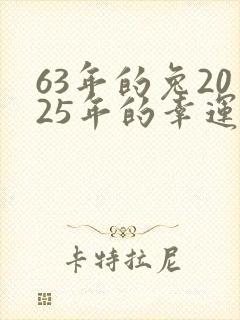 63年的兔20
25年的幸运
卡特拉尼